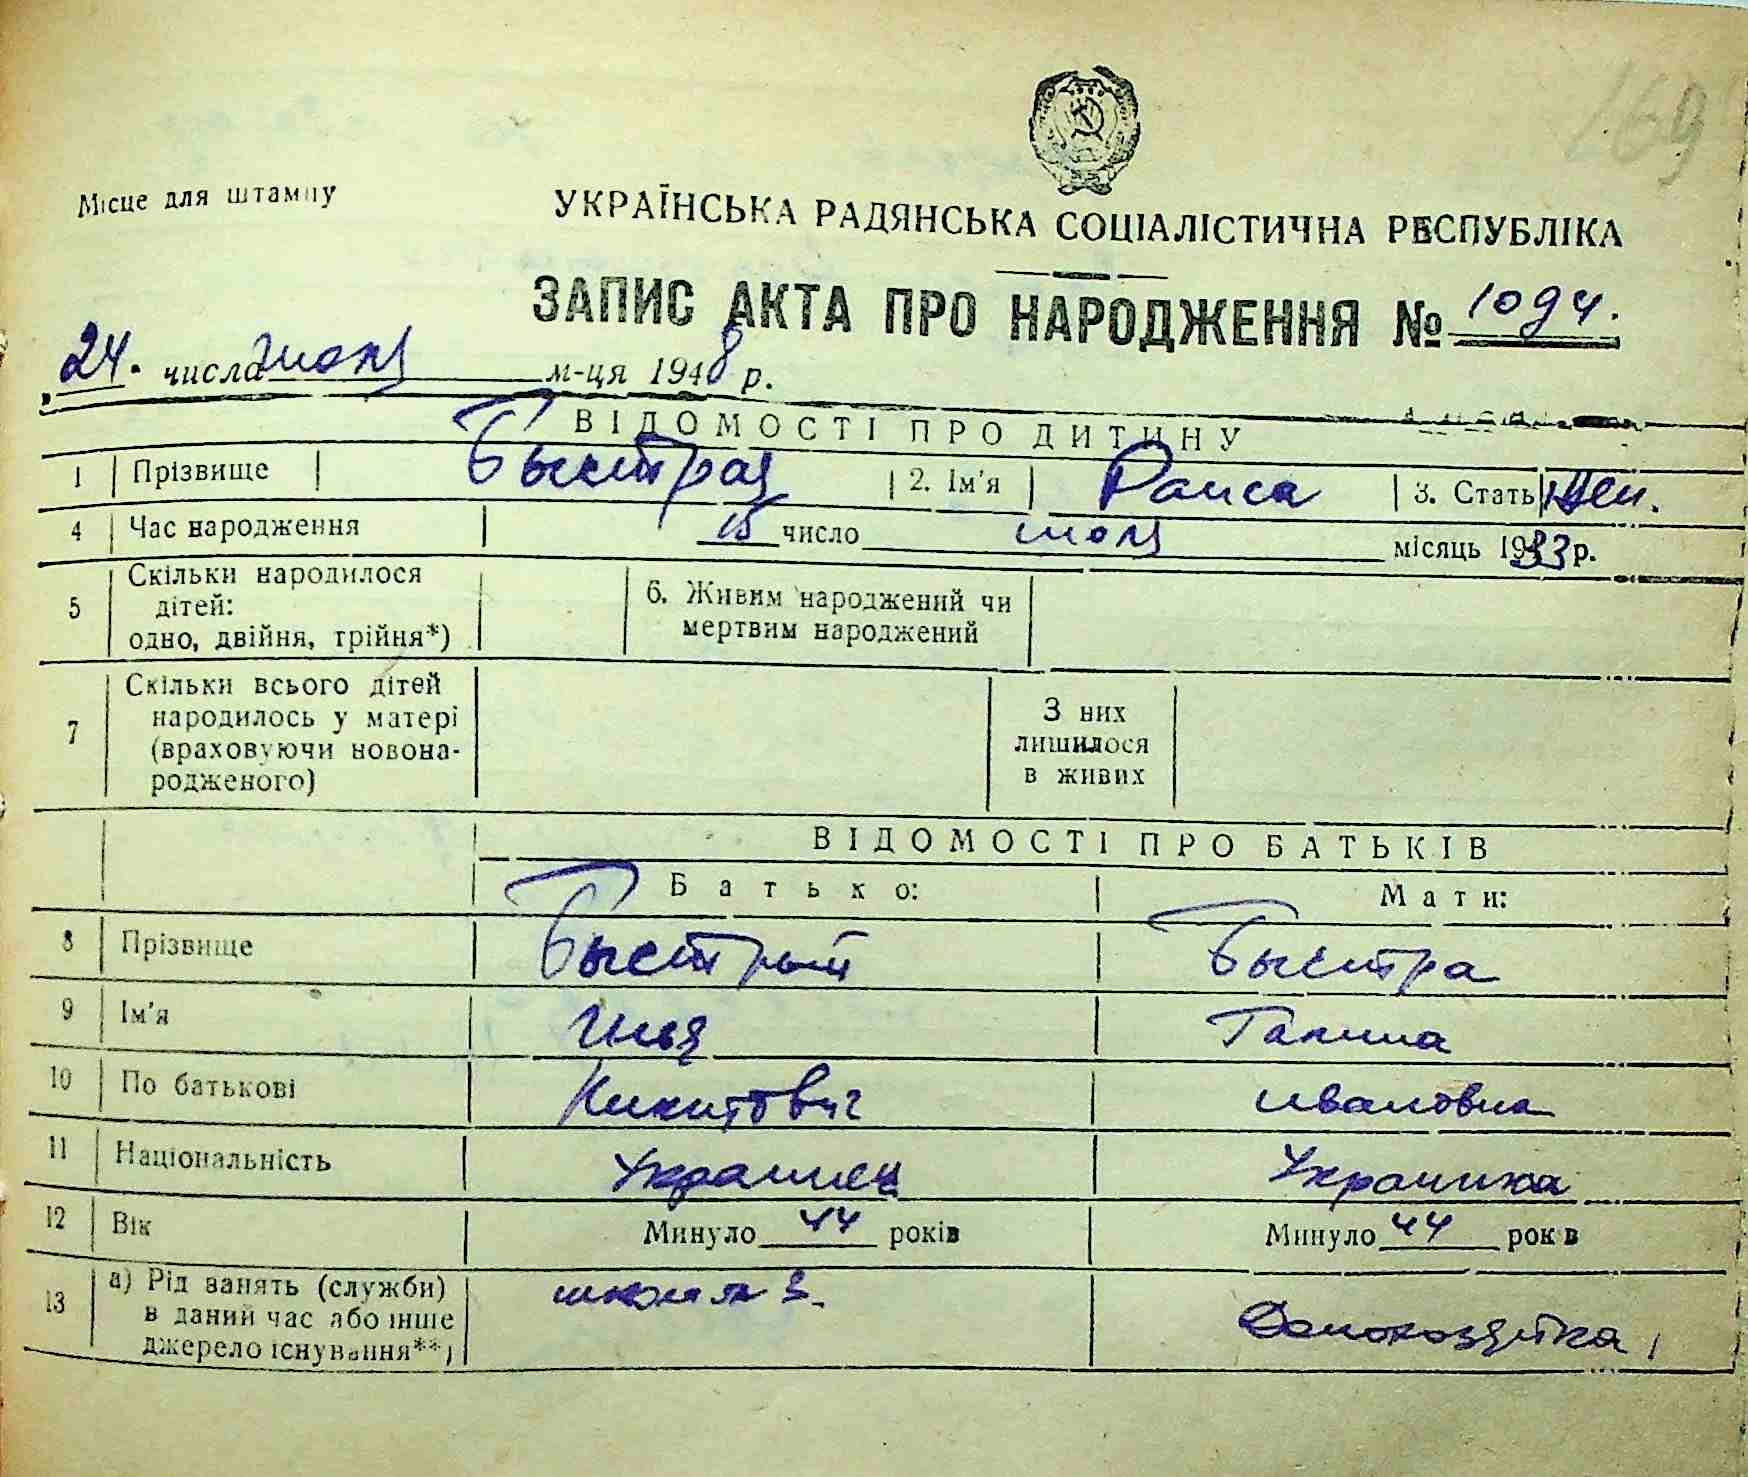 169
Місце для штампу
УКРАЇНСЬКА РАДЯНСЬКА СОЦІАЛІСТИЧНА РЕСПУБЛІКА
ЗАПИС АКТА ПРО НАРОДЖЕННЯ № 1094.
24. числа июля м-ця 1948 р.
ВІДОМОСТІ ПРО ДИТИНУ
1 Прізвище Быстрая 2. Ім'я Раиса 3. Стать Жен.
4 Час народження 15 число июля місяць 1933 р.
5 Скільки народилося дітей: одно, двійня, трійня*) 6. Живим народжений чи мертвим народжений
7 Скільки всього дітей народилось у матері (враховуючи новонародженого) З них лишилося в живих
ВІДОМОСТІ ПРО БАТЬКІВ
Батько: Мати:
8 Прізвище Быстрый Быстра
9 Ім'я Илья Галина
10 По батькові Никитович Ивановна
11 Національність Украинец Украинка
12 Вік Минуло 44 років Минуло 44 років
13 а) Рід занять (служби) в даний час або інше джерело існування**) школа 3. Домохозяйка